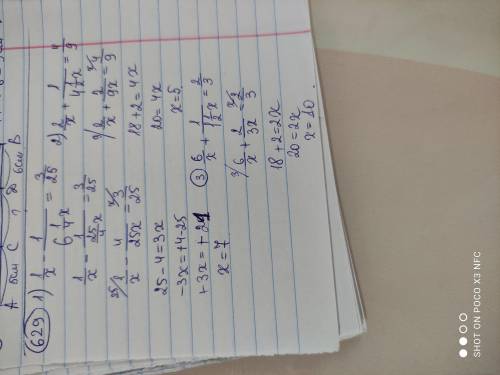 A 6см C ? D 6см B
629 1) 1/x - 1/(6 1/4 x) = 3/25
1/x - 1/(25/4 x) = 3/25
25/ 1/x - 4/25x = x/ 3/25
25 - 4 = 3x
-3x = +4-25
+3x = +21
x = 7
2) 2/x + 1/(4 1/2 x) = 4/9
9/ 2/x + 2/9x = x/ 4/9
18 + 2 = 4x
20 = 4x
x = 5
3) 6/x + 1/(1 1/2 x) = 2/3
3/ 6/x + 2/3x = x/ 2/3
18 + 2 = 2x
20 = 2x
x = 10
SHOT ON POCO X3 NFC